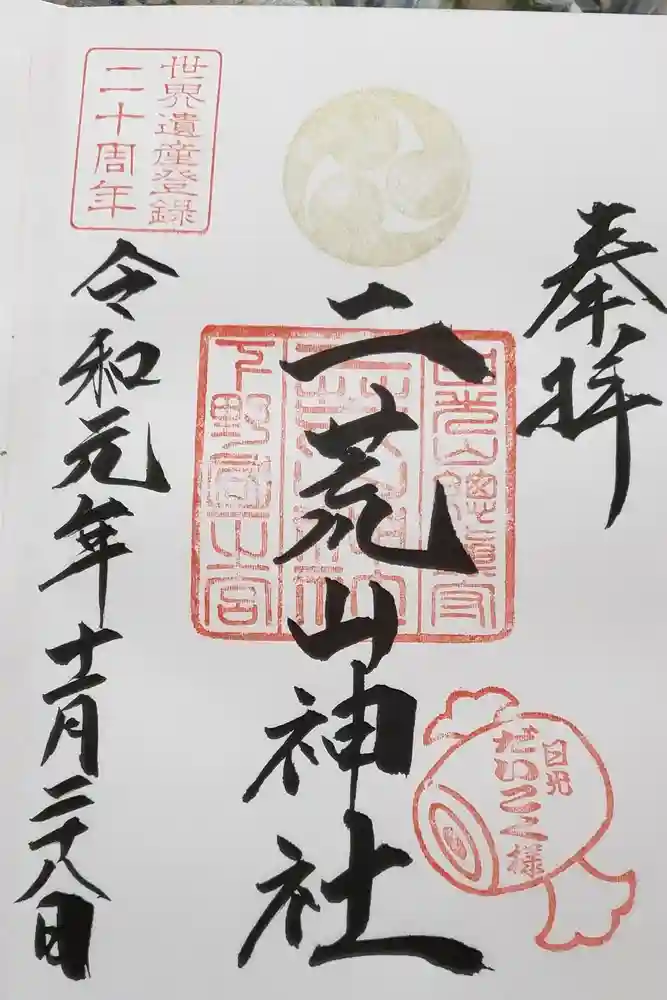 奉拝
二荒山神社
令和元年十一月二十八日
世界遺産登録
二十周年
日光山總鎮守
二荒山神社
下野國一之宮
日光
だいこく様